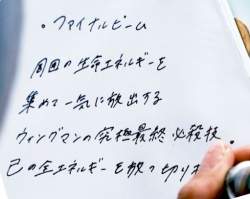 ・ファイナルビーム
周囲の生命エネルギーを
集めて一気に放出する
ウィングマンの究極最終必殺技。
己の全エネルギーを放つ切り